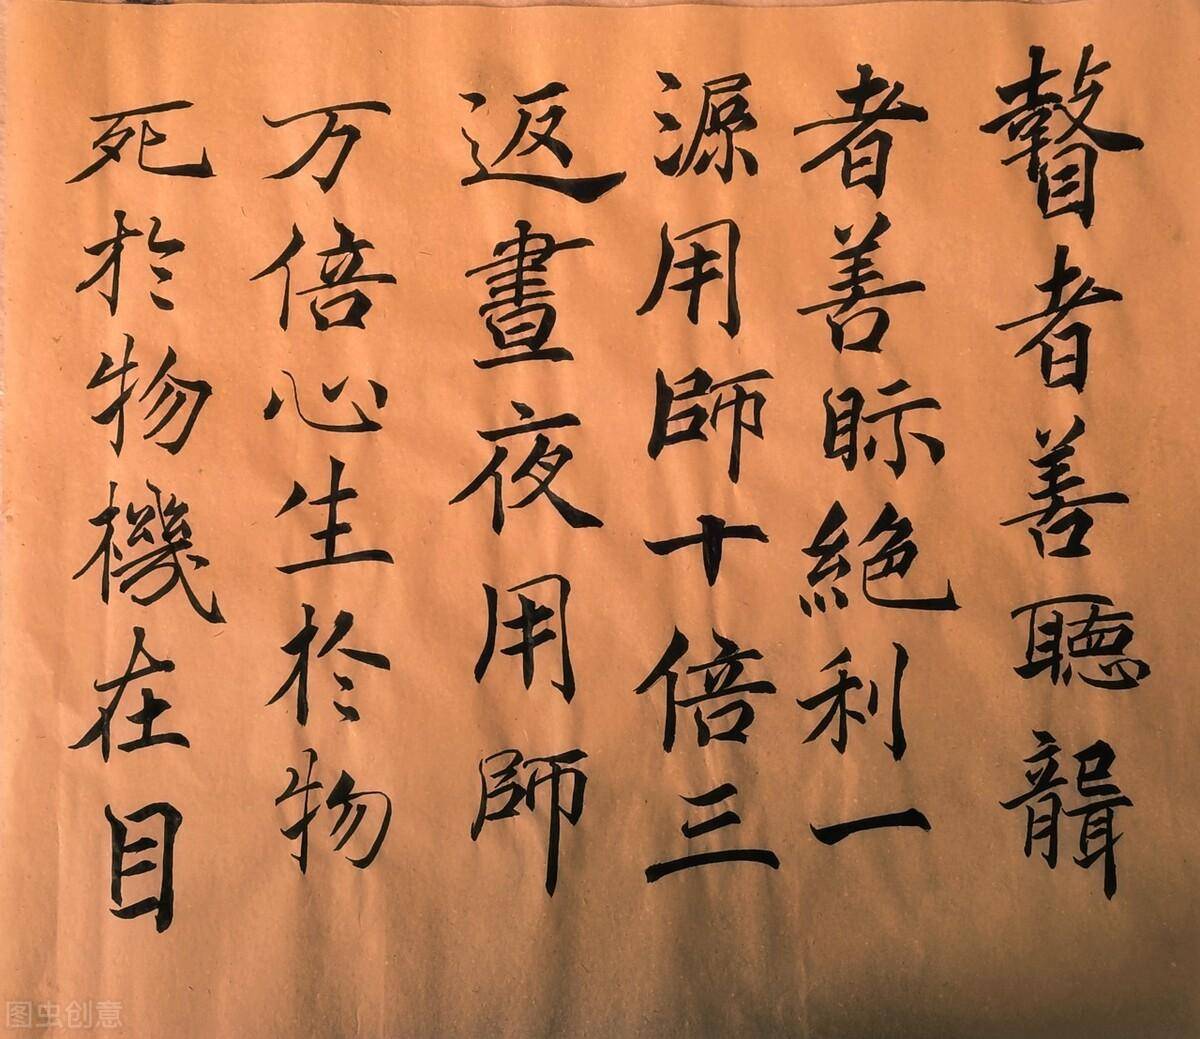 瞽者善聴聾
者善眎絶利一
源用師十倍三
返晝夜用師
万倍心生於物
死於物機在目
图虫创意